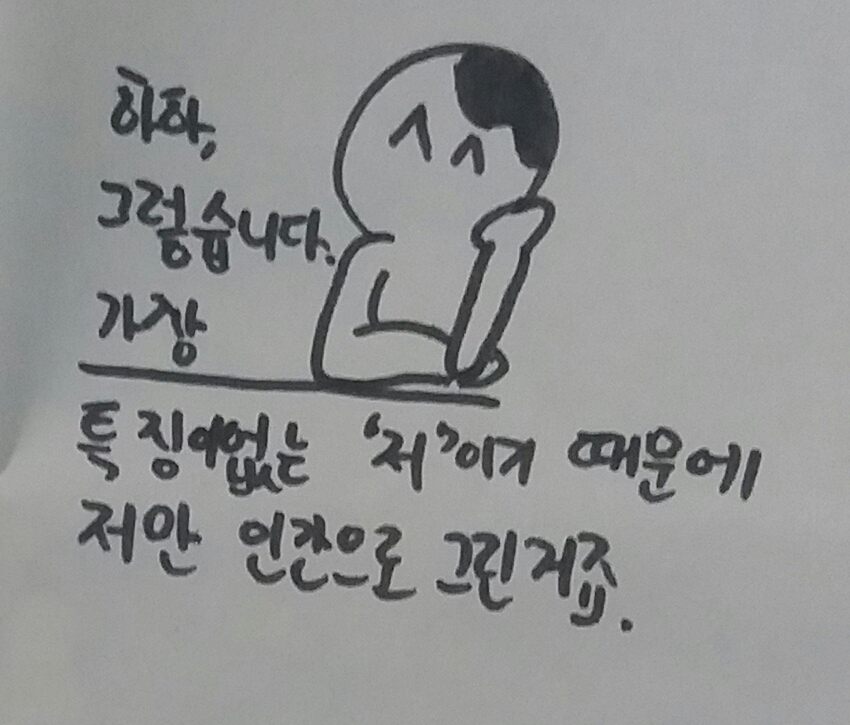 하하,
그렇습니다.
가장
특징이없는 '저'이기 때문에
저만 인간으로 그린거죠.